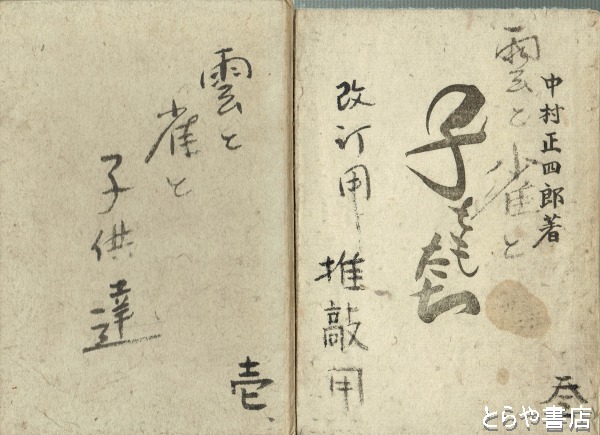 雲と
雀と
子供達
壱
中村正四郎著
雲と雀と
子ともたち
改訂用 推敲用
参
とらや書店